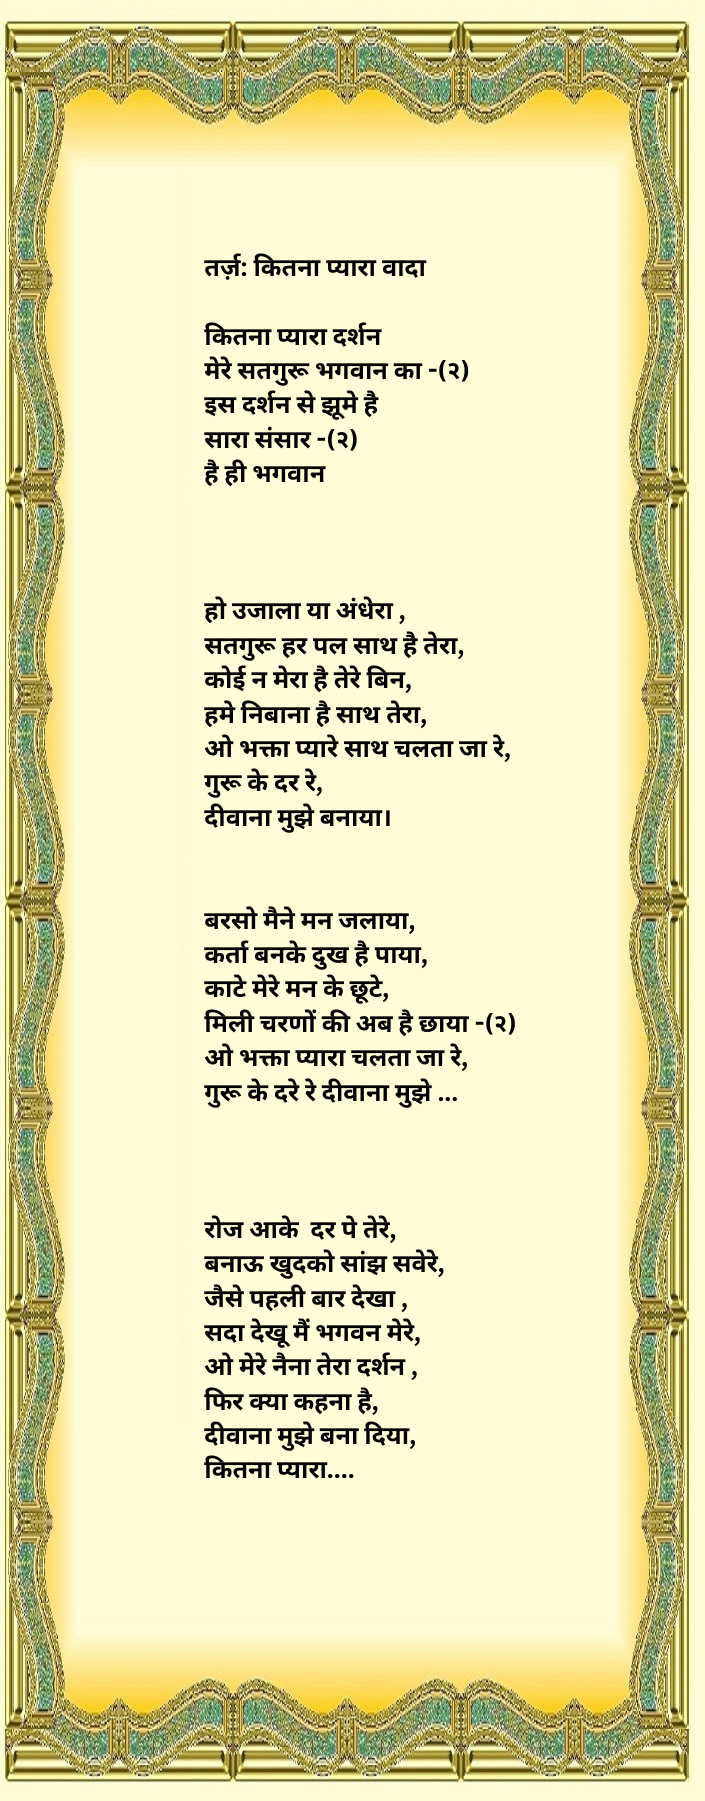 तर्ज़: कितना प्यारा वादा
कितना प्यारा दर्शन
मेरे सतगुरू भगवान का -(२)
इस दर्शन से झूमे है
सारा संसार -(२)
है ही भगवान
हो उजाला या अंधेरा ,
सतगुरू हर पल साथ है तेरा,
कोई न मेरा है तेरे बिन,
हमे निबाना है साथ तेरा,
ओ भक्ता प्यारे साथ चलता जा रे,
गुरू के दर रे,
दीवाना मुझे बनाया।
बरसो मैने मन जलाया,
कर्ता बनके दुख है पाया,
काटे मेरे मन के छूटे,
मिली चरणों की अब है छाया -(२)
ओ भक्ता प्यारा चलता जा रे,
गुरू के दरे रे दीवाना मुझे ...
रोज आके  दर पे तेरे,
बनाऊ खुदको सांझ सवेरे,
जैसे पहली बार देखा ,
सदा देखू मैं भगवन मेरे,
ओ मेरे नैना तेरा दर्शन ,
फिर क्या कहना है,
दीवाना मुझे बना दिया,
कितना प्यारा....